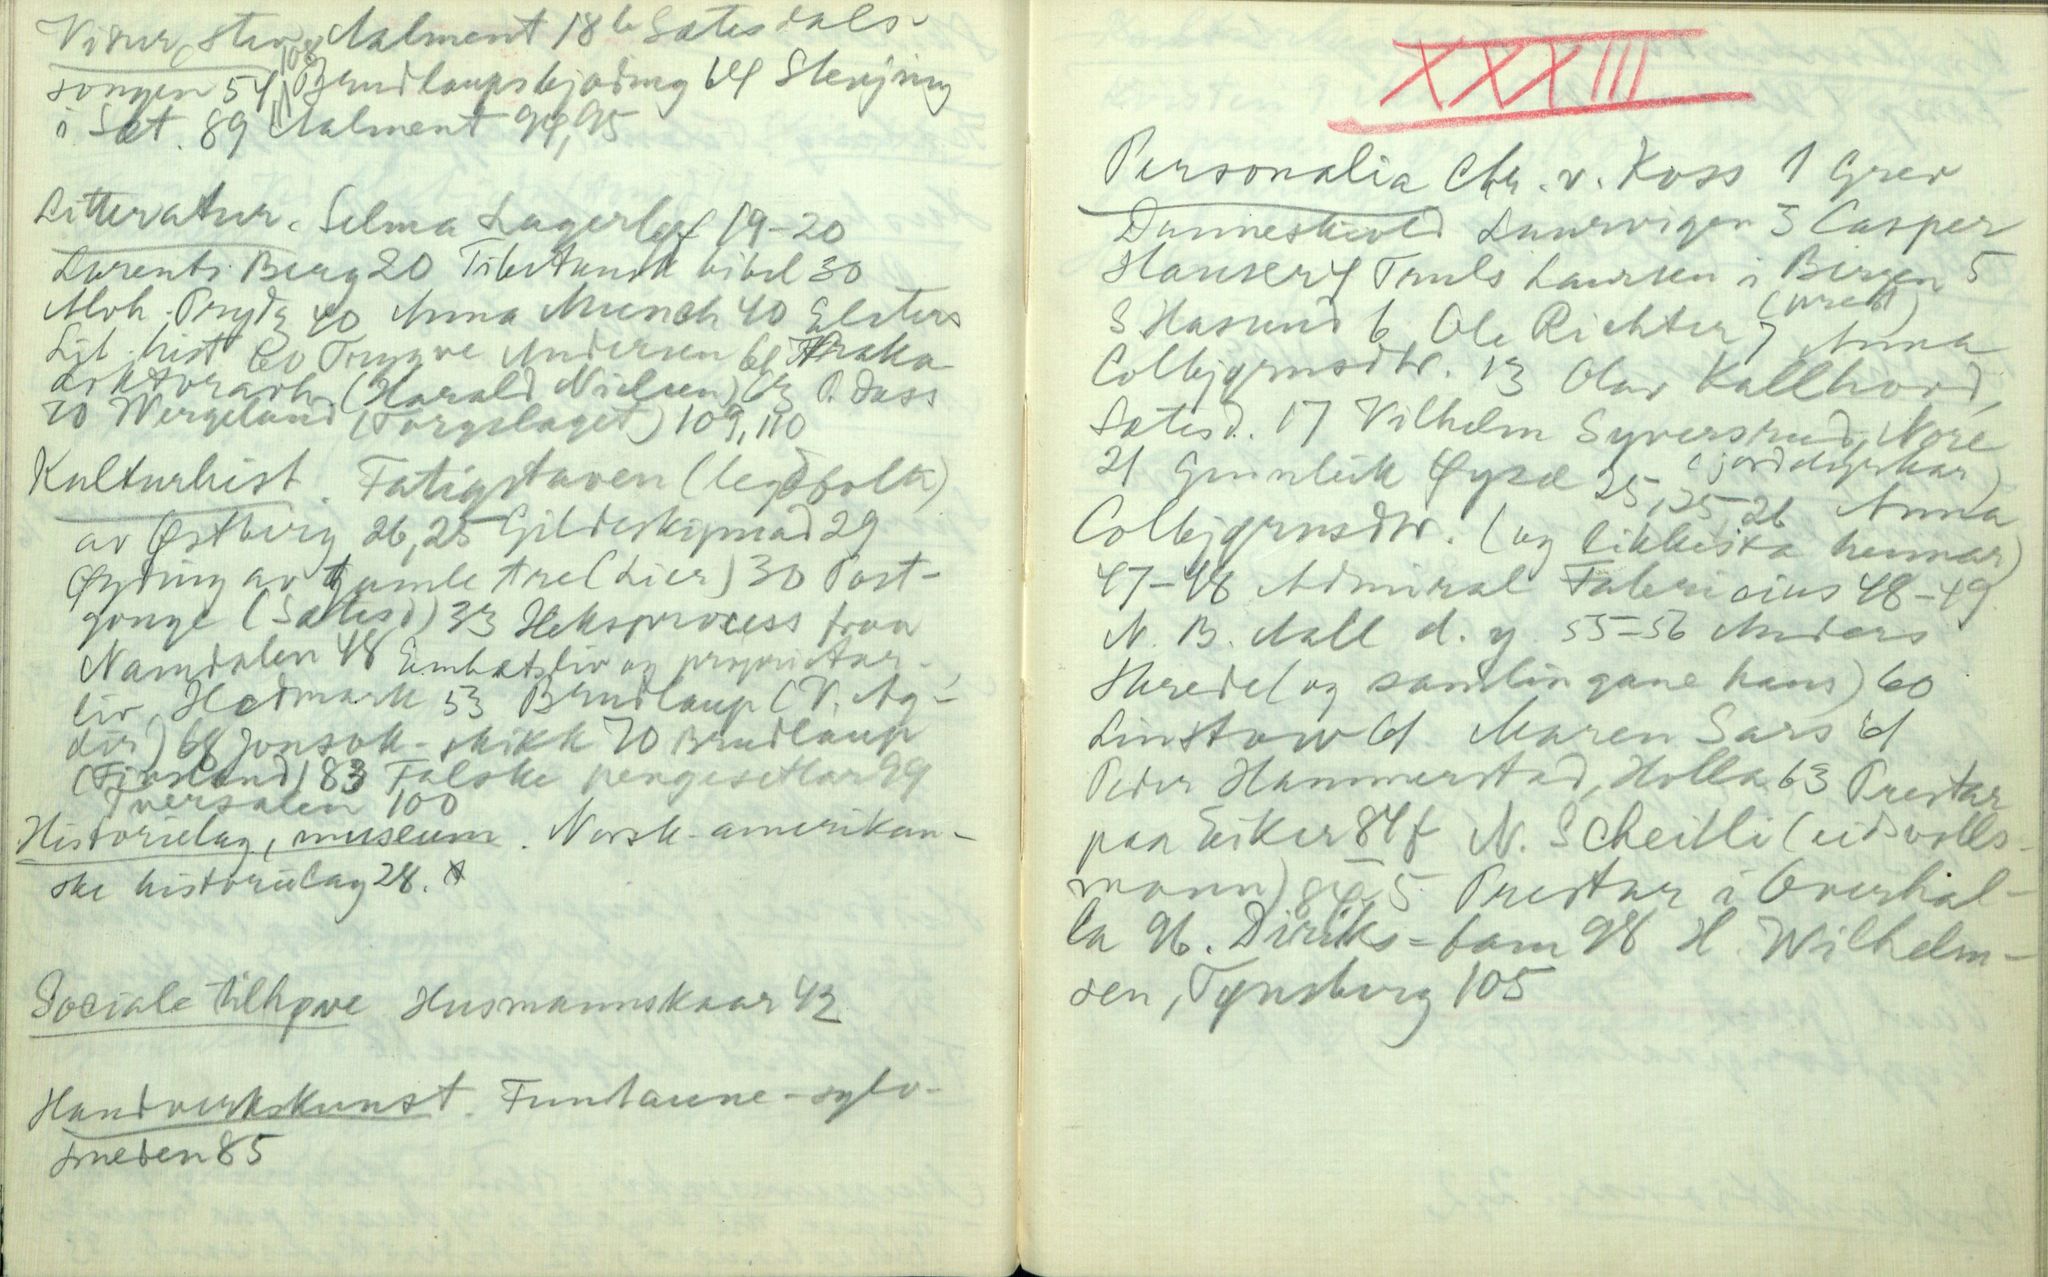 Visur, stev Aalment 18 b Sætesdals-
songen 54, 108, 111 Brudlaupsbjoding 64 Stevjing
i Sæt. 89 Aalment 94, 95
Litteratur. Selma Lagerløf 19-20
Laurents Berg 20 Tibetansk bibel 30
Alvh. Prydz 40 Anna Munch 40 Elsters
Lit. hist 60 Trygve Andersen 61
doktorarb. (Harald Nielsen) 63 P. Dass
70 Wergeland (Torgslaget) 109, 110
Kulturhist. Fatigstaven (legdfolk)
av Østberg 26, 25 Gildeskipnad 29
Øyding av gamle tre (Lier) 30 Post-
gonge (Sætesd) 33 Heksprocess fraa
Namdalen 48 Embætsliv og proprietær-
liv, Hedmark 53 Brudlaup (V. Ag-
der) 68 Jonsok-skikk 70 Brudlaup
(Finsland) 83 Falske pengesetlar 99
Iversalen 100
Historielag, museum. Norsk-amerikan-
ske historielag 28.
Sociale tilhøve Husmannskaar 42
Handverkskunst. Funtaune-sylv-
smeden 85
XXXIII
Personalia Chr. v. Koss 1 Grev
Danneskiold Laurvigen 3 Casper
Hauser 4 Truls Laursen i Bergen 5
S Hasund 6 Ole Richter 7 (prest) Anna
Colbjørnsdtr. 13 Olav Kallhovd,
Sætesd. 17 Vilhelm Syversrud, Nore
21 (jorddyrkar) Gunnleik Øysæ 25, 25, 26 Anna
Colbjørnsdtr. (og likkista hennar)
47-48 Admiral Fabricius 48-49
N. B. Aall d. y. 55-56 Anders
Skrede (og samlingane hans) 60
Linstow 61 Maren Sars 61
Peder Hammerstad, Holla 63 Prestar
paa Eiker 84 f N. Scheitli (eidsvolls-
mann) 84, 5 Prestar i Overhal-
la 96. Diriks-fam 98 H. Wilhelm-
sen, Tynsberg 105